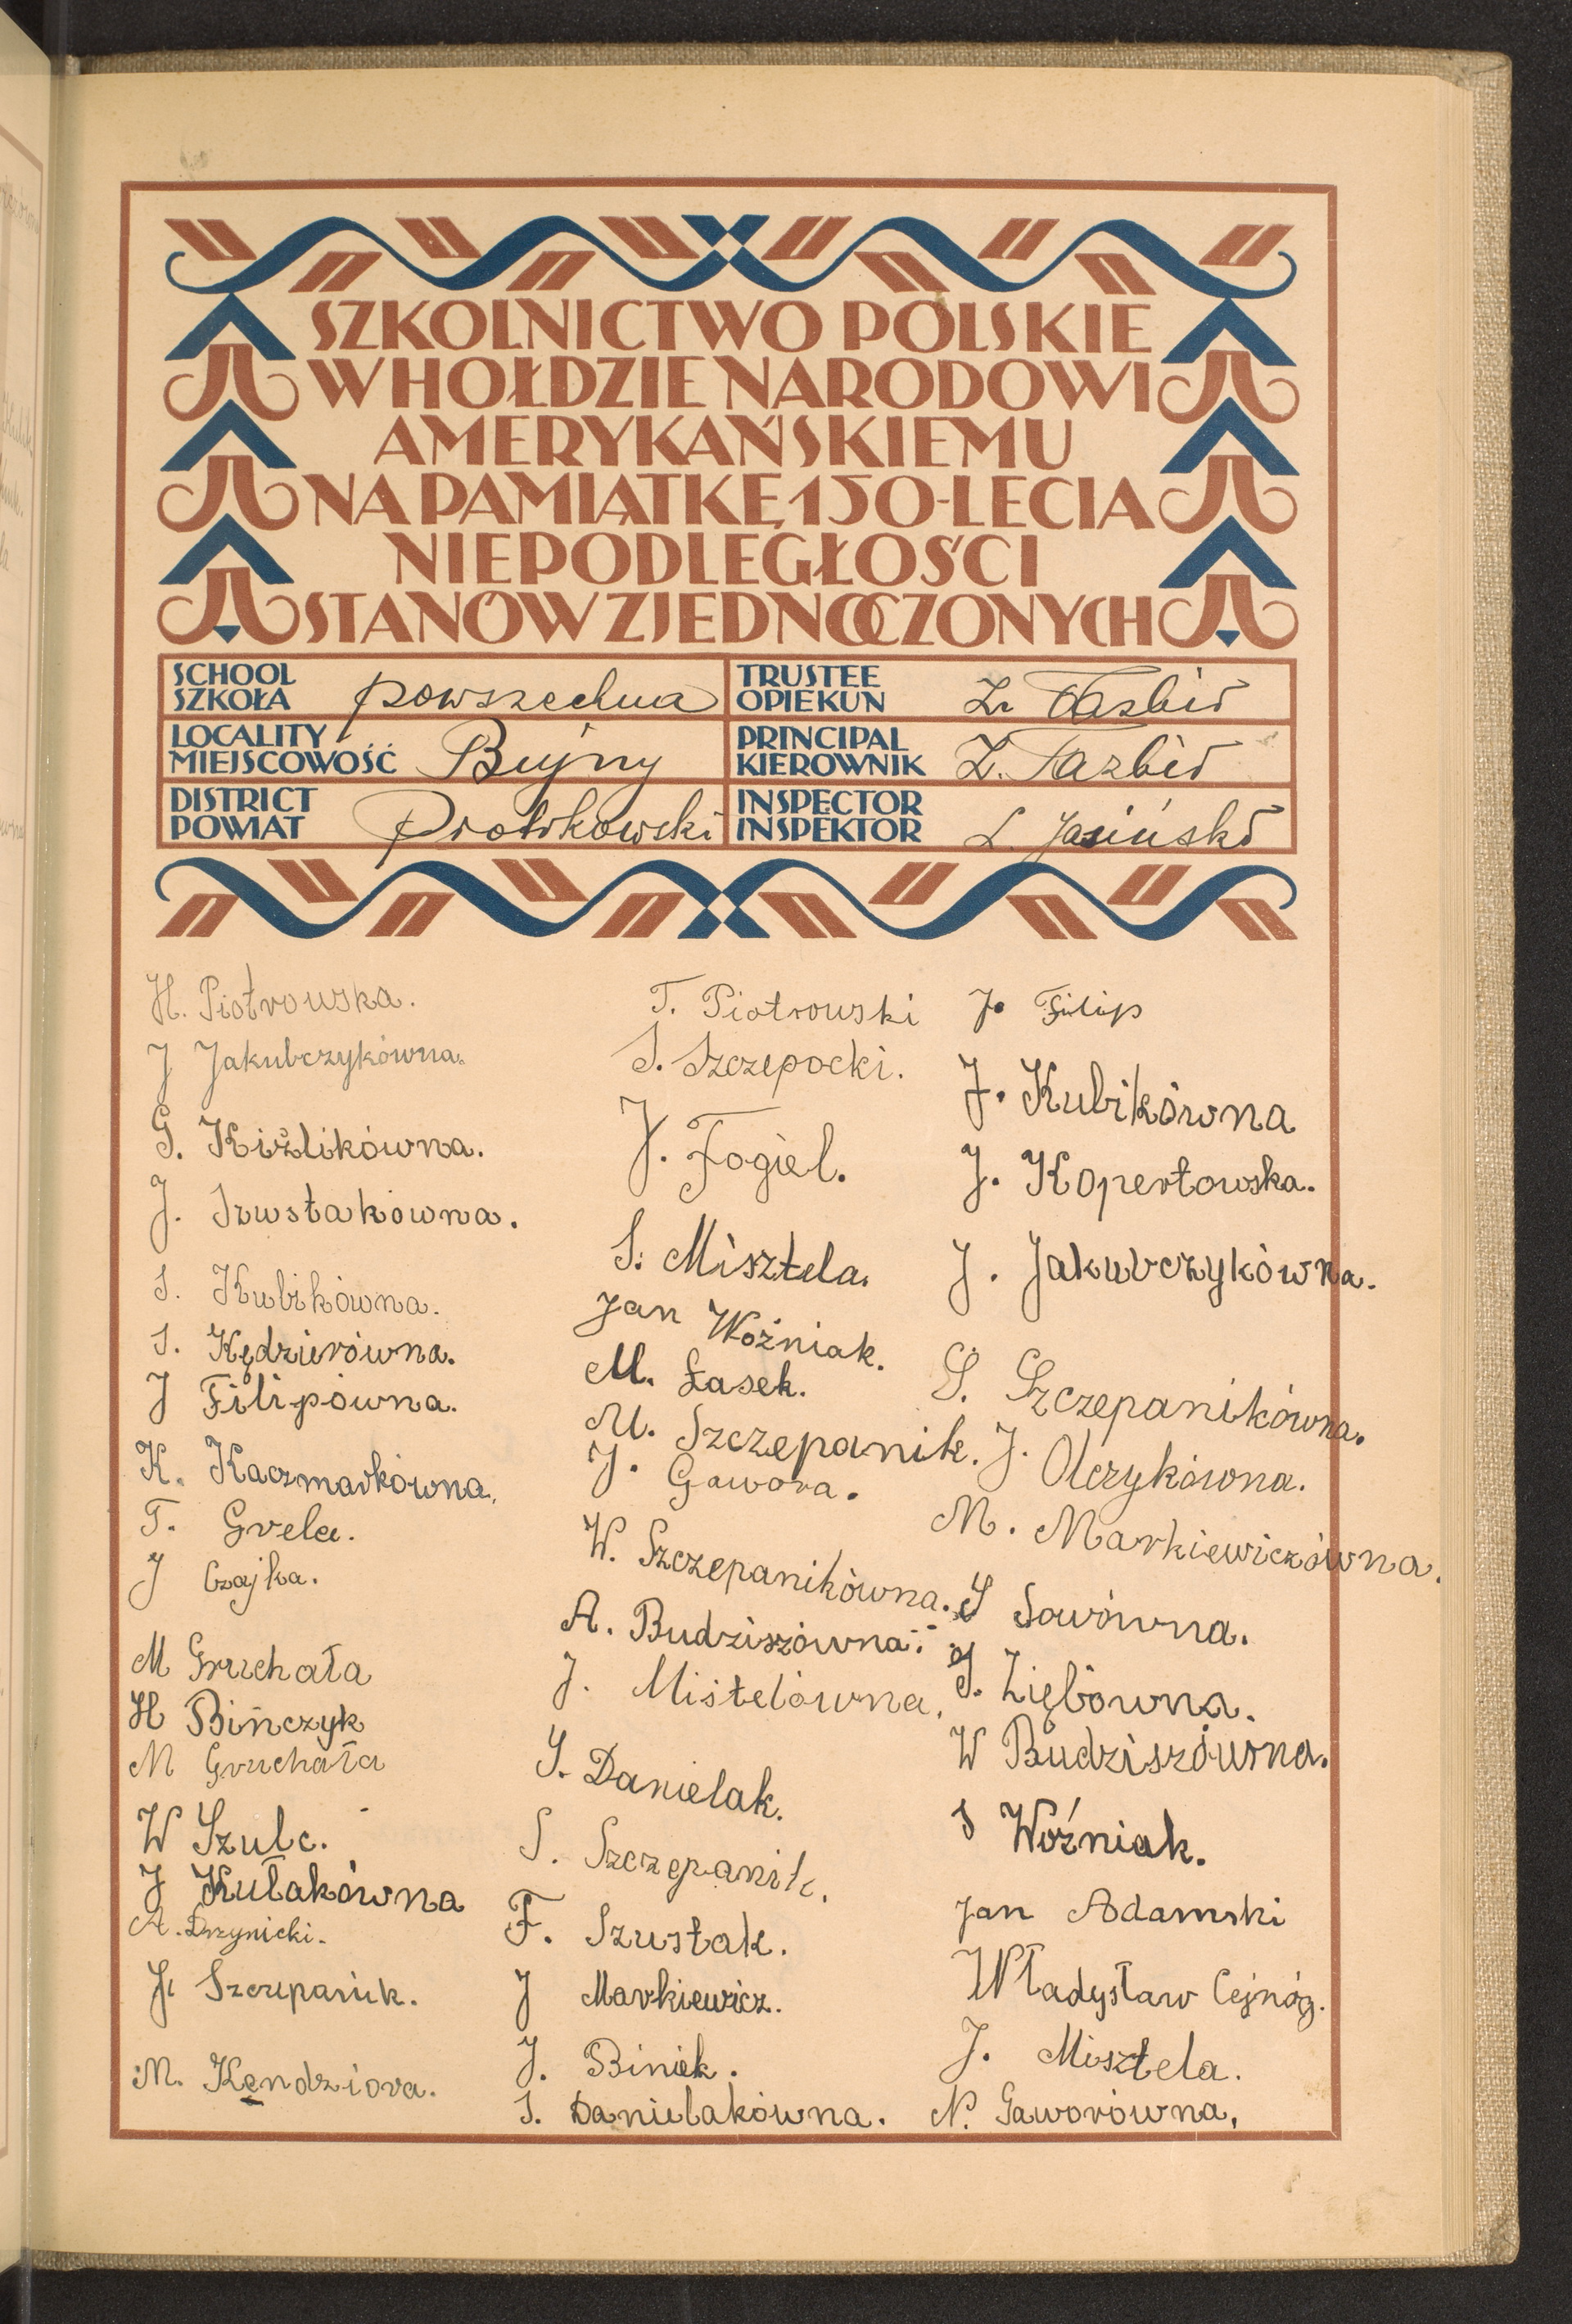 SZKOLNICTWO POLSKIE
W HOŁDZIE NARODOWI
AMERYKAŃSKIEMU
NA PAMIĄTKĘ 150-LECIA
NIEPODLEGŁOŚCI
STANÓW ZJEDNOCZONYCH
SCHOOL
SZKOŁA powszechna
TRUSTEE
OPIEKUN Z. Tazbir
LOCALITY
MIEJSCOWOŚĆ Bujny
PRINCIPAL
KIEROWNIK Z. Tazbir
DISTRICT
POWIAT Piotrkowski
INSPECTOR
INSPEKTOR L. Jasiński
H. Piotrowska.
J Jakubczykówna.
G. Kiźlikówna.
J. Szustakowna.
S. Kubikówna.
S. Kędzierówna.
J Filipówna.
K. Kaczmarkówna.
T. Grela.
J Czajka.
M Gruchała
H Bińczyk
M Gruchała
W Szulc.
J Kułakówna
A. Drzynicki.
J. Szczepanik.
M. Kendziora.
T. Piotrowski
S. Szczepocki.
J. Fogiel.
S. Misztela.
Jan Woźniak.
M. Łasek.
M. Szczepanik.
J. Gawora.
W. Szczepanikówna.
A. Budziszówna.
J. Mistelówna.
S. Danielak.
S. Szczepanik.
F. Szustak.
J Markiewicz.
J. Biniek.
S. Danielakówna.
J. Filip
J. Kubikówna
J. Kopertowska.
J. Jakubczykówna.
S. Szczepanikówna.
J. Olczykówna.
M. Markiewiczówna.
S Sowówna.
J. Ziębówna.
W Budziszówna.
S Woźniak.
Jan Adamski
Władysław Cejnóg.
J. Misztela.
N. Gaworówna.